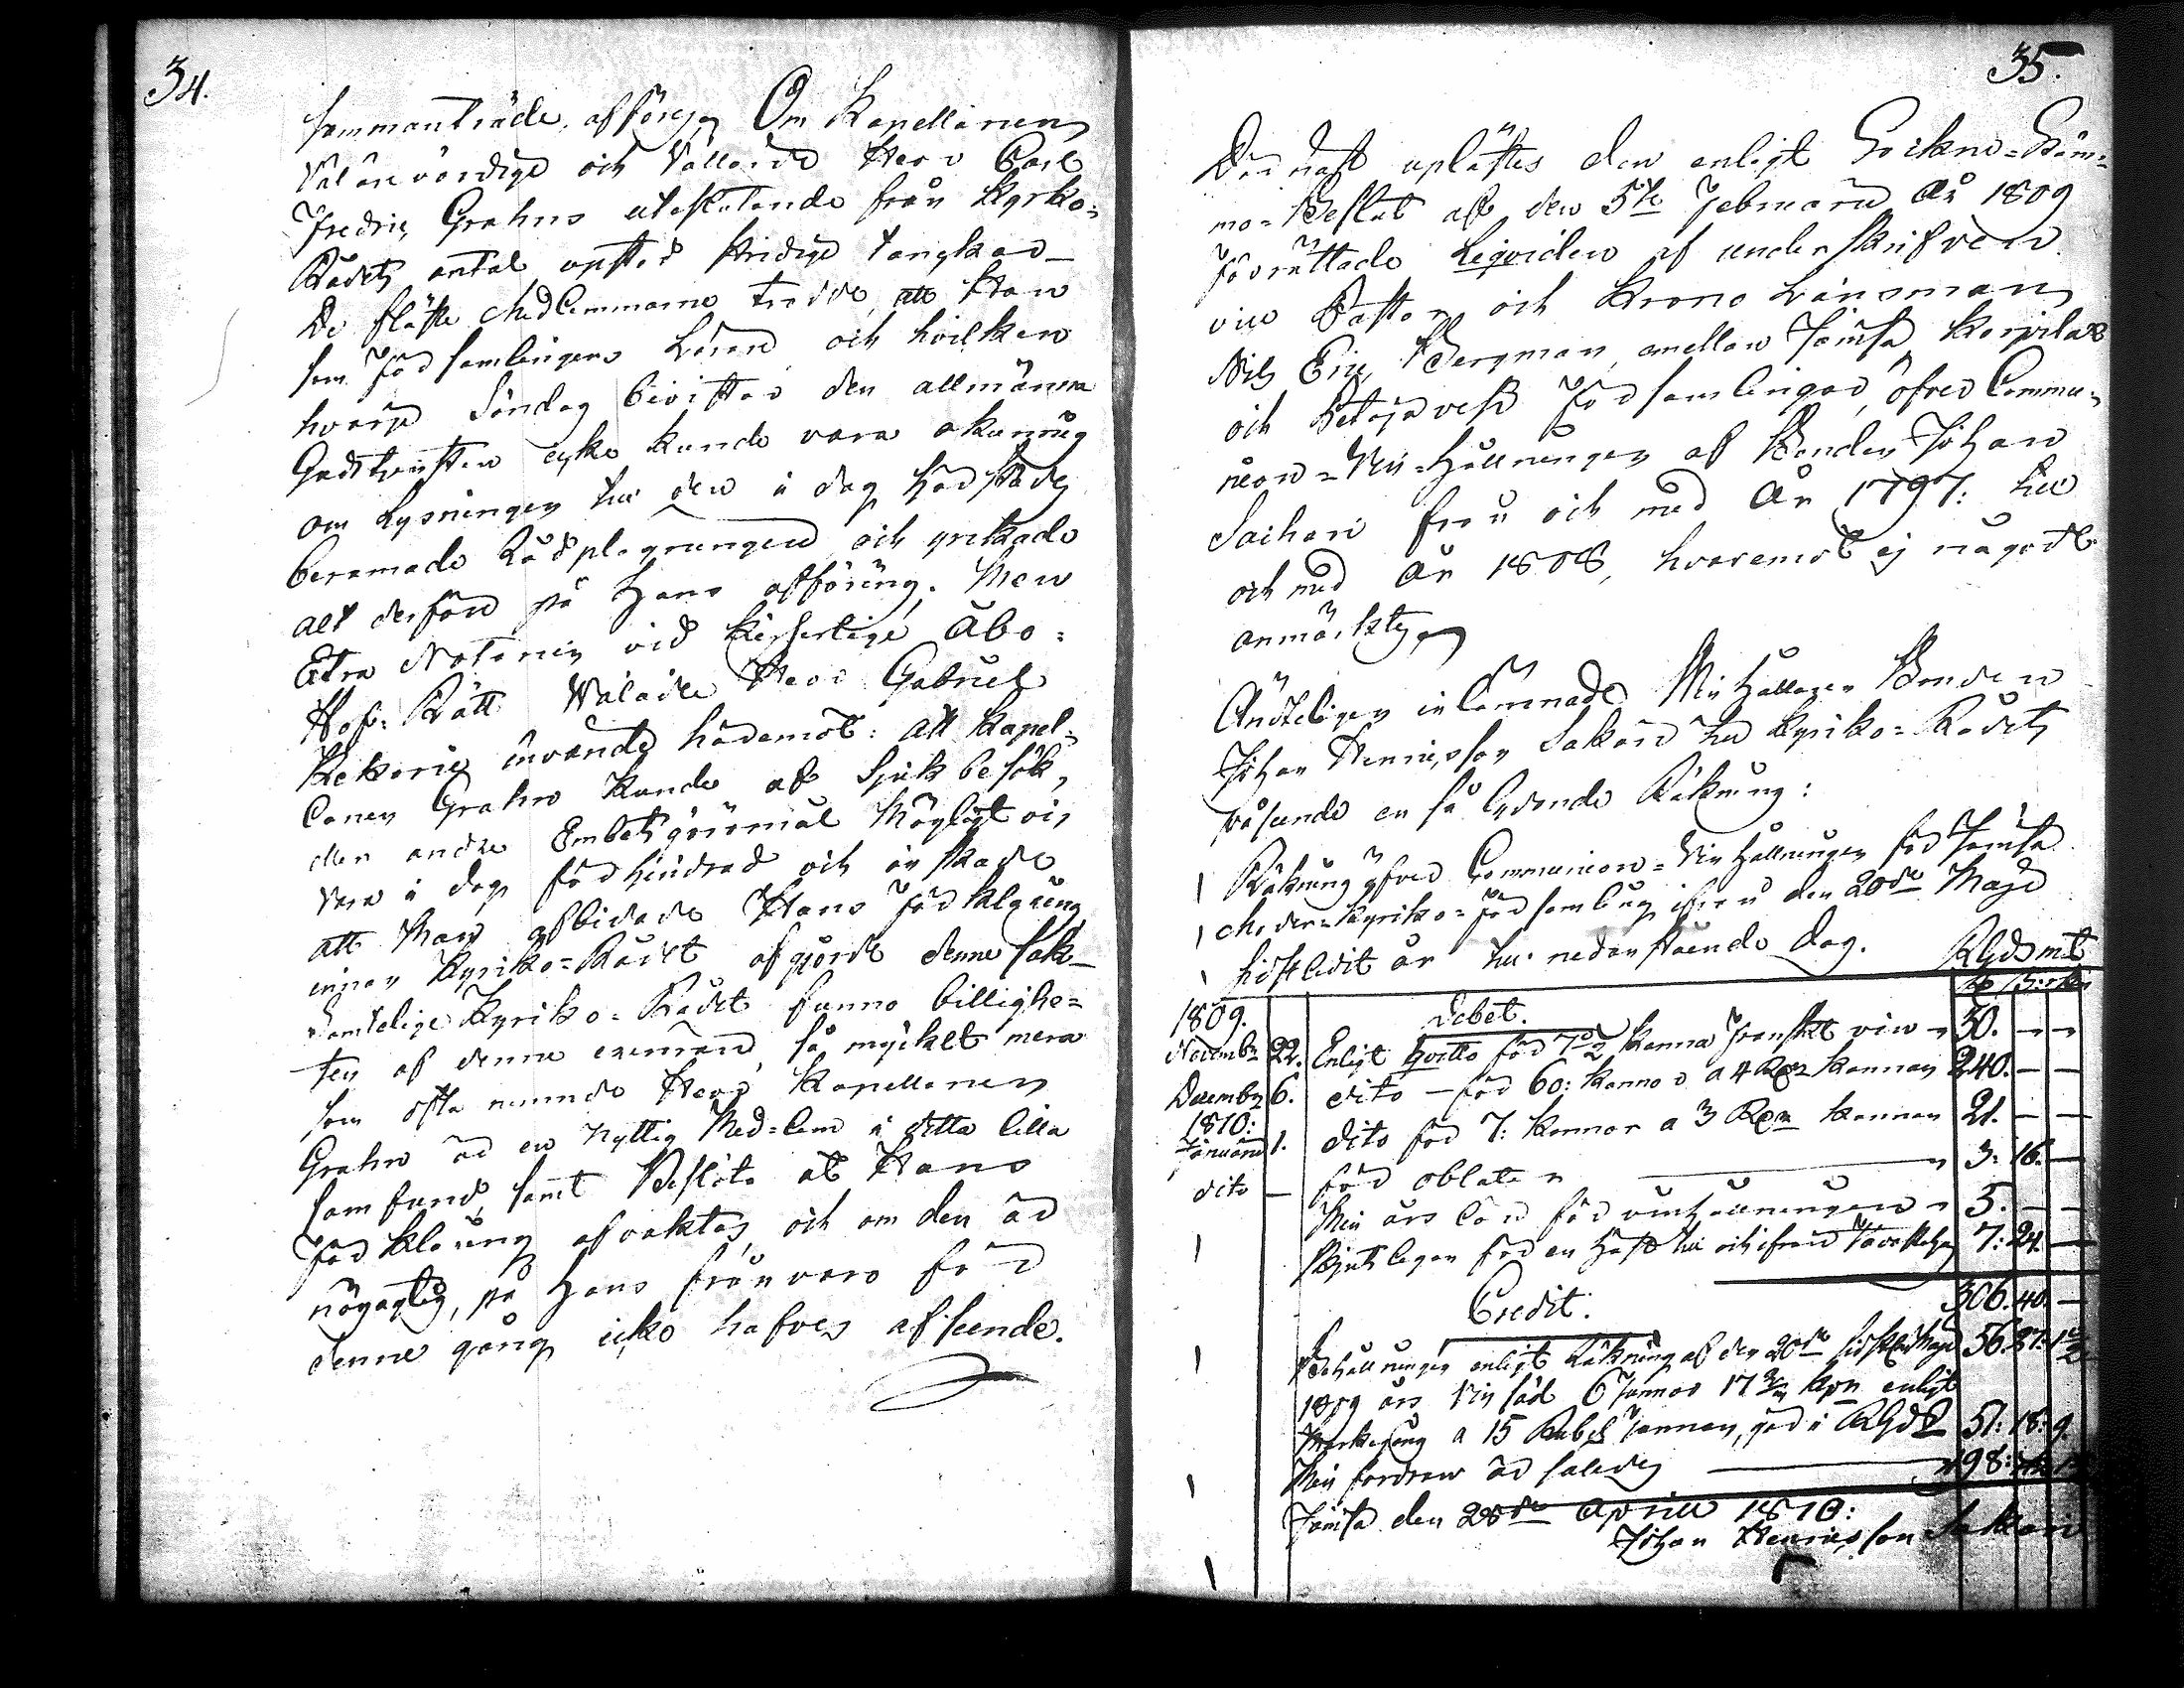 34.
sammanträde, afsöres. Om Kapellanen
Välärevördige och Vällärde Herr Carl
Fredric Grahns uteslutande från Kyrko-
Rådets antal upstod stridige tanckar_
De fläste Medlemmarne trodde, att Han
som Församlingens Lärare och hvilken
hvarje Söndag bivistar den allmänna
Gudstjensten icke kunde vara okunnig
om Lysningen til den i dag härstädes
beramade Rådplägningen och yrkade
alt derföre på Hans afföring. Men
Extra Notarien vid Kejserlige Åbo-
Hof-Rätt Välädle Herr Gabriel
Kekonig invände häremot: att Kapel-
lanen Grahn kunde af Sjukbesök,
eller andre Embetsgöromål Möjligtvis
vara i dag förhindrad och önskade
att Man afbidade Hans förklaring
innan Kyrko-Rådet afgjorde denna sak_
Samtelige Kyrko-Rådet funno billighe-
ten af denne erinran, så myckelt mera
som ofta nämnde Herr Kapellanen
Grahn är en nyttig Med-lem i detta lilla
samfund, samt Beslöto at Hans
förklaring afvaktas, och om den är
nöjagtig, på Hans frånvaro för
denne gång icke hafves afseende.
35.
Därnäst uplästes den enligt Sockne-Stäm-
mo-Beslut af den 5te Februarii År 1809
förrättade Liqviden af underskrifven
vice Pastor och Krono Länsman
Nils Eric Bergman emellan Jämsä Korpilax
och Petäjävesi Församlingar, öfver Commu-
nion-Vin-Hållningen af Bonden Johan
Saikari från och med År 1797: til
och med År 1808, hvaremot ej någodt
anmärktes
Ändteligen inlämnade Vinhållaren Bonden
Johan Henricsson Sakari til Kyrko-Rådets
påseende en så lydande Räkning:
Räkning öfver Communion-Vinhållningen för Jämsä
Moder-Kyrko-Församling ifrån den 20de Maji
sistledit år til nedanstående dag. RGds mt
1809. Debet.
Novembr 22. Enligt Qvitto för 7 1/2 Kanna franskt vin 30. — —
Decembr 6. dito — för 60: Kannor a 4 Rdr Kannan 240. — —
1810:
Januarii 1. dito för 7: Kannor a 3 Rdr Kannan 21. — —
dito — för oblater 3: 16. —
Min års lön för vinhållningen 5. — —
Skjutslegan för en häst til och ifrån Tavasthus 7: 24. —
306. 40. —
Credit.
Behållningen enligt Räkning af den 20de sistled Maji 56. 27. 1 1/2
1809 års Vin säd 6 Tunnor 17 3/4 kpr enligt
Markegång a 15 Rubel Tunnan, gör i RGds 51: 18: 9.
Min fordran är således 198:
Jämsä den 20de Aprill 1810:
Johan Henricsson Sakari